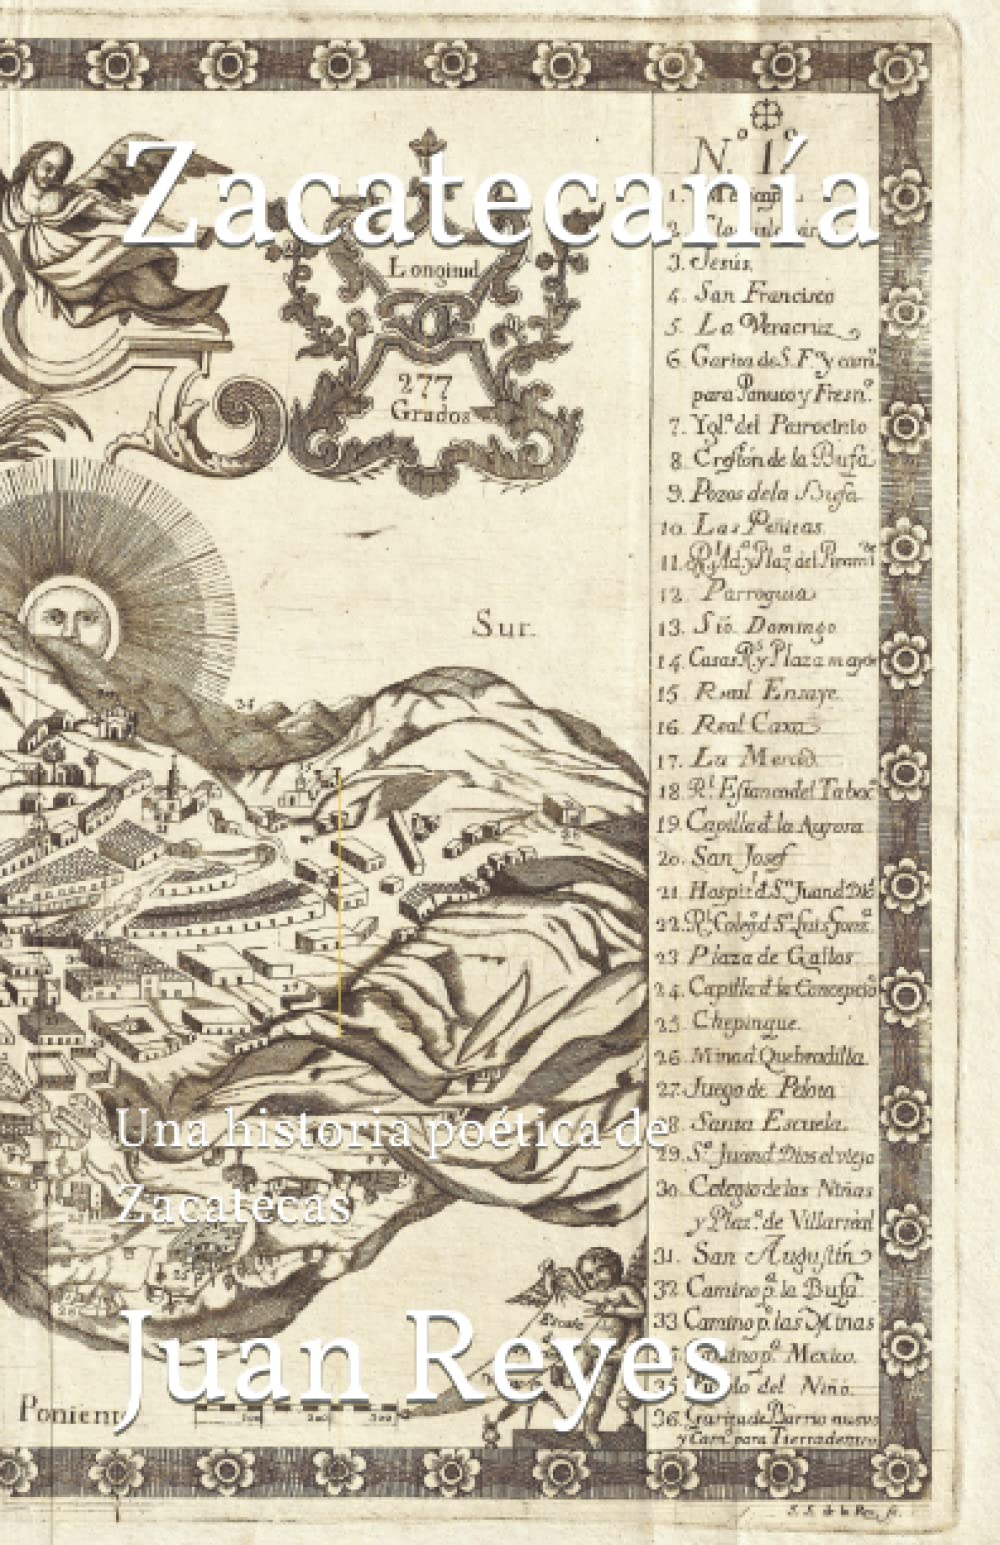 Zacatecanía
Longitud
277
Grados
Sur.
Una historia poética de
Zacatecas
Juan Reyes
Poniente
N.º 1º
3. Jesús.
4. San Francisco
5. La Veracruz
6. Garita de S. F.co y cam.º
para Panuco y Fresn.º
7. Ygl.ª del Patrocinio
8. Creston de la Bufa
9. Pozos de la Bufa
10. Las Peñitas.
12. Parroquia
13. Sto. Domingo
14. Casas R.s y Plaza mayor
15. Real Ensaye.
16. Real Caxa
17. La Merced.
18. R.l Estanco del Tabac.º
19. Capilla d. la Aurora
20. San Josef
21. Hospit. d. S.n Juan d. Dios
22. R.l Coleg.º d. S.n Luis Gonz.ª
23. Plaza de Gallos
24. Capilla d. la Concepcio
25. Chepinque.
26. Mina d. Quebradilla.
27. Juego de Pelota
28. Santa Escuela.
29. S.n Juan d. Dios el viejo
30. Colegio de las Niñas
y Plaz.ª de Villarreal
31. San Augustin
32. Camino p.ª la Bufa
33. Camino p.ª las Minas
Mexico.
35. Pueblo del Niño.
36. Garita de Barrio nuevo
y Cam.º para Tierradentro